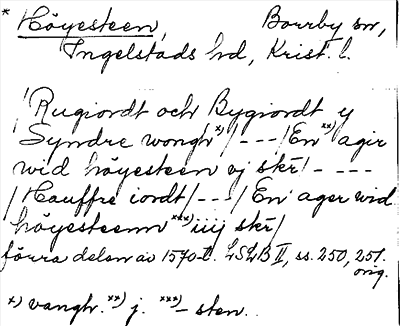 * Höyesteen, Bourby sn,
Ingelstads hd, Krist. l.
/Rugiordt och Bygiordt y
Syndre wongh x)/---/En xx) agir
wid höyesteen vj skr/- ---
/Hauffre iordt/---/En ager wid
höyesteenn xxx) iiij skr/
förra delen av 1570-t. LSLB II, ss. 250, 251.
orig.
x) vangh. xx) j. xxx) -sten.